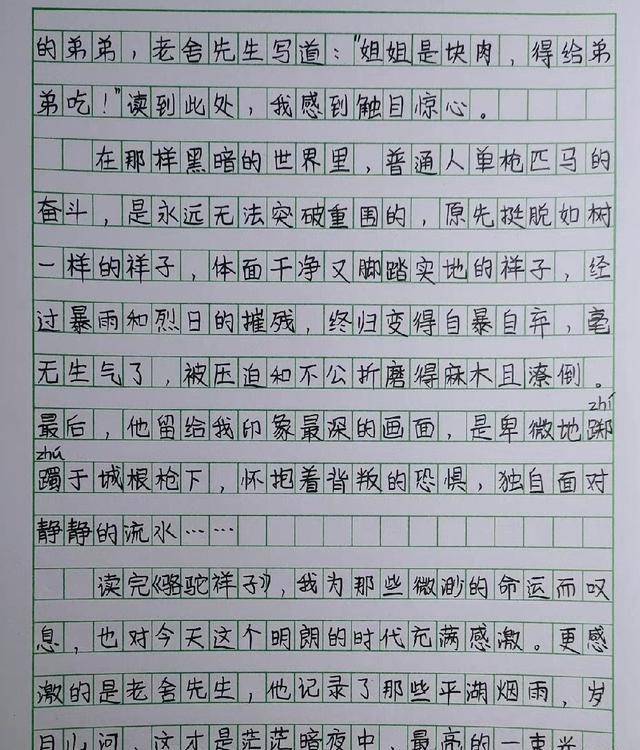 的弟弟，老舍先生写道："姐姐是块肉，得给弟
弟吃！"读到此处，我感到触目惊心。
在那样黑暗的世界里，普通人单枪匹马的
奋斗，是永远无法突破重围的，原先挺脱如树
一样的祥子，体面干净又脚踏实地的祥子，经
过暴雨和烈日的摧残，终归变得自暴自弃，毫
无生气了，被压迫和不公折磨得麻木且潦倒。
zhí
最后，他留给我印象最深的画面，是卑微地踯
zhú
躅于城根枪下，怀抱着背叛的恐惧，独自面对
静静的流水……
读完《骆驼祥子》，我为那些微渺的命运而叹
息，也对今天这个明朗的时代充满感激。更感
激的是老舍先生，他记录了那些平湖烟雨，岁
月山河，这才是茫茫暗夜中，最高的一束光。